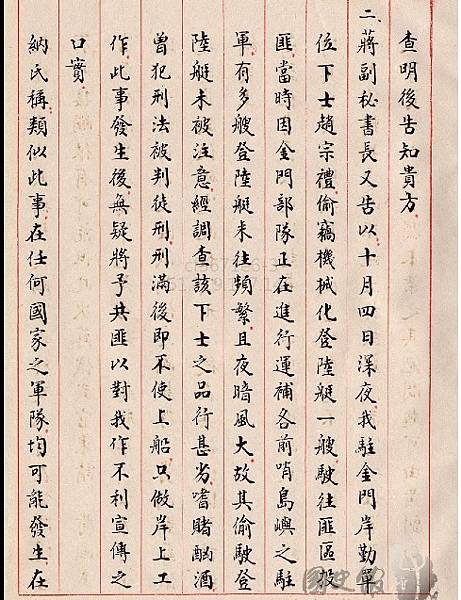 查明後告知貴方
二、蔣副秘書長又告以十月四日深夜我駐金門岸勤單
位下士趙宗禮偷竊機械化登陸艇一艘駛往匪區投
匪當時因金門部隊正在進行運補各前哨島嶼之駐
軍有多艘登陸艇來往頻繁且夜暗風大故其偷駛登
陸艇未被注意經調查該下士之品行甚劣嗜賭酗酒
曾犯刑法被判徒刑刑滿後即不使上船只做岸上工
作此事發生後無疑將予共匪以對我作不利宣傳之
口實
納氏稱類似此事在任何國家之軍隊均可能發生在